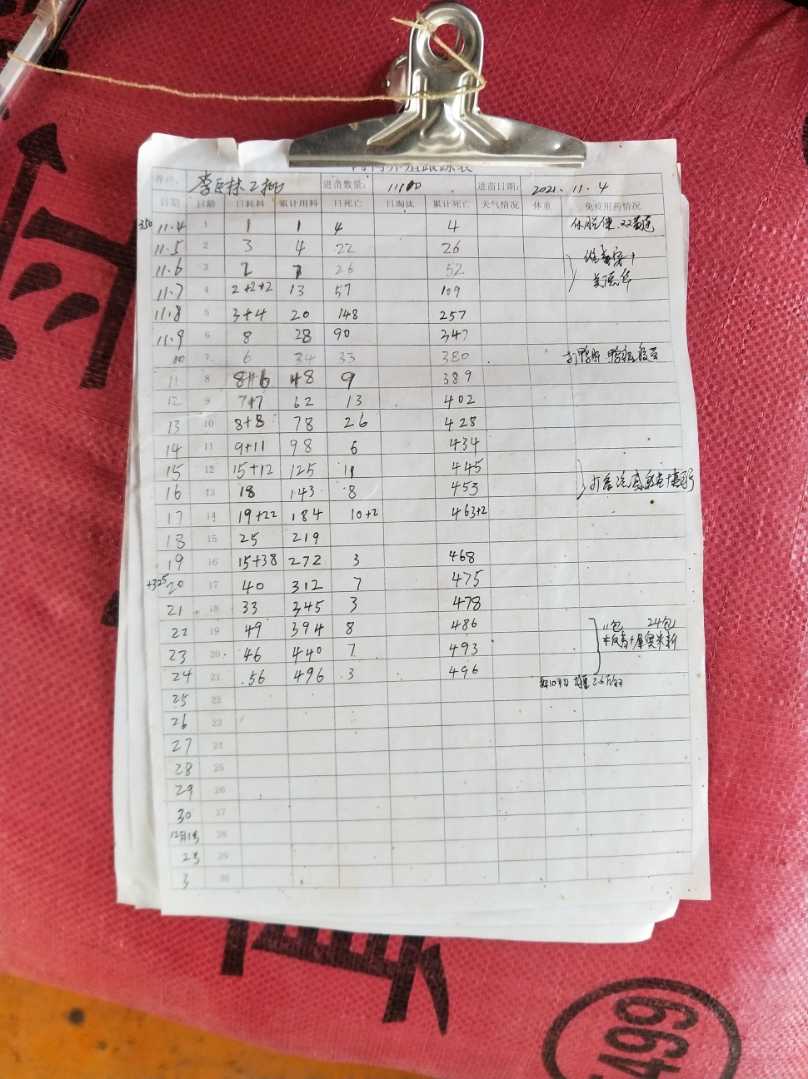 进苗数量: 11100 进苗日期: 2021. 11. 4
日期 日龄 日耗料 累计用料 日死亡 日淘汰 累计死亡 天气情况 体重 免疫用药情况
350 11.4 1 1 1 4 4
11.5 2 3 4 22 26
11.6 3 2 7 26 52
11.7 4 2+2+2 13 57 109
11.8 5 3+4 20 148 257
11.9 6 8 28 90 347
10 7 6 34 33 380
11 8 8+6 48 9 389
12 9 7+7 62 13 402
13 10 8+8 78 26 428
14 11 9+11 98 6 434
15 12 15+12 125 11 445
16 13 18 143 8 453
17 14 19+22 184 10+2 463+2
18 15 25 219
19 16 15+38 272 3 468
+325 20 17 40 312 7 475
21 18 33 345 3 478
22 19 49 394 8 486 11包 24包
23 20 46 440 7 493
24 21 56 496 3 496
25 22
26 23
27 24
28 25
29 26
30 27
12月1号 28
2号 29
3 30
499